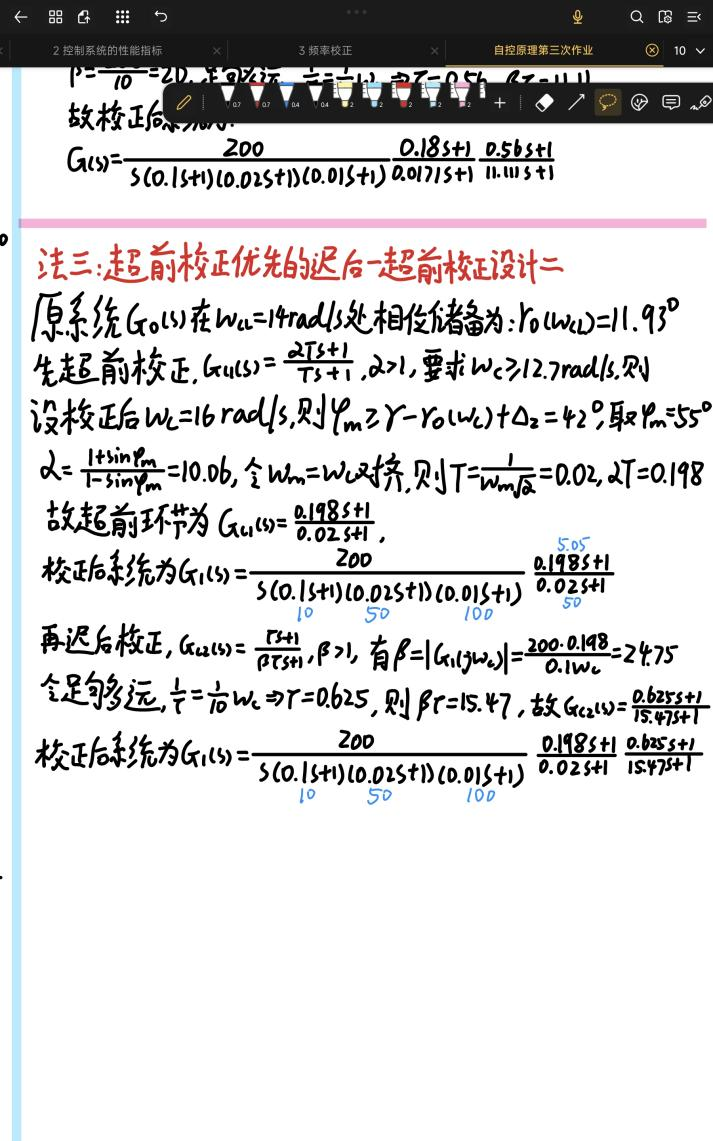 2 控制系统的性能指标 3 频率校正 自控原理第三次作业 10
0.7 0.7 0.4 0.4 2 2 2 2 2
故校正后
G(s)=200/(s(0.1s+1)(0.02s+1)(0.01s+1)) (0.18s+1)/(0.0171s+1) (0.56s+1)/(11.11s+1)
法三:超前校正优先的迟后-超前校正设计二
原系统G₀(s)在ωc1=14rad/s处相位储备为:γ₀(ωc1)=11.93°
先超前校正,Gc1(s)=(αTs+1)/(Ts+1),α>1,要求ωc≥12.7rad/s,则
设校正后ωc=16rad/s,则φm≥γ-γ₀(ωc)+Δ₂=42°,取φm=55°
α=(1+sinφm)/(1-sinφm)=10.06,令ωm=ωc对齐,则T=1/(ωm√α)=0.02,αT=0.198
故超前环节为Gc1(s)=(0.198s+1)/(0.02s+1),
校正后系统为G₁(s)=200/(s(0.1s+1)(0.02s+1)(0.01s+1)) (0.198s+1)/(0.02s+1)
5.05
10 50 100 50
再迟后校正,Gc2(s)=(τs+1)/(βτs+1),β>1,有β=|G₁(jωc)|=(200·0.198)/(0.1ωc)=24.75
令足够多远,1/τ=1/10ωc⇒τ=0.625,则βτ=15.47,故Gc2(s)=(0.625s+1)/(15.47s+1)
校正后系统为G₁(s)=200/(s(0.1s+1)(0.02s+1)(0.01s+1)) (0.198s+1)/(0.02s+1) (0.625s+1)/(15.47s+1)
10 50 100